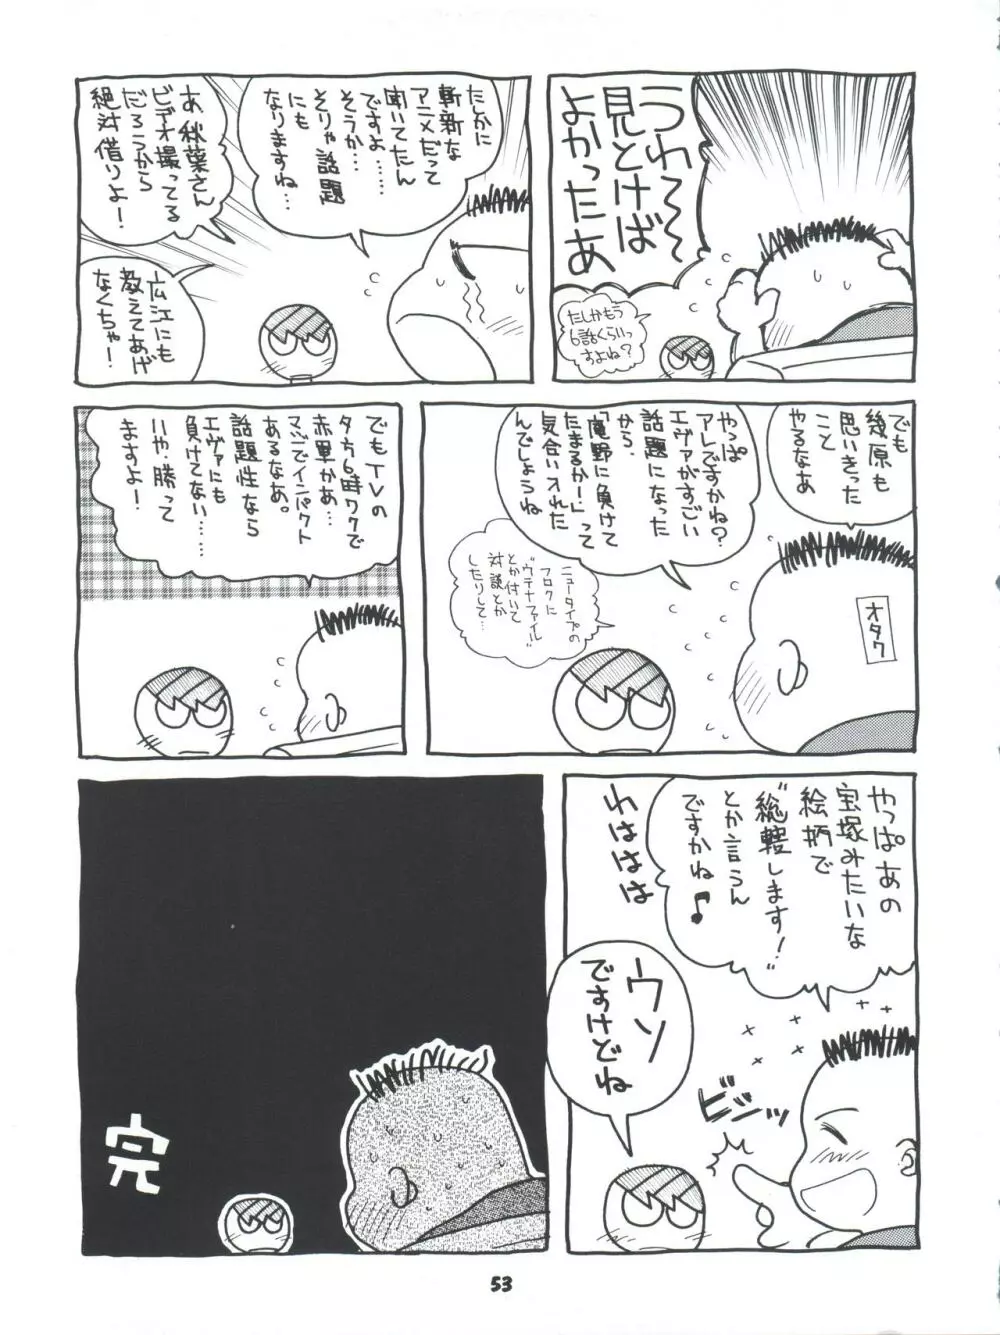 うわ〜〜
見とけば
よかったあ
たしかもう
6話くらいっ
すよね?
たしかに
斬新な
アニメだって
聞いてたん
ですよ……
そうか……
そりゃ話題
にも
なりますね…
あ、秋葉さん
ビデオ撮ってる
だろうから
絶対借りよ!
広江にも
教えてあげ
なくちゃ!
でも
幾原も
思いきった
こと
やるなあ
オタク
やっぱ
アレですかね?
エヴァがすごい
話題になった
から、
「庵野に負けて
たまるか!」って
気合い入れた
んでしょうね
ニュータイプの
フロクに
"ウテナファイル"
とか付いて
対談とか
したりして…
でもTVの
夕方6時ワクで
赤軍かあ…
マジでインパクト
あるなあ。
話題性なら
エヴァにも
負けてない……
いや、勝って
ますよ!
やっぱあの
宝塚みたいな
絵柄で
"総轄します!"
とか言うん
ですかね♪
わははは
ビシッ
ウソ
ですけどね
完
53